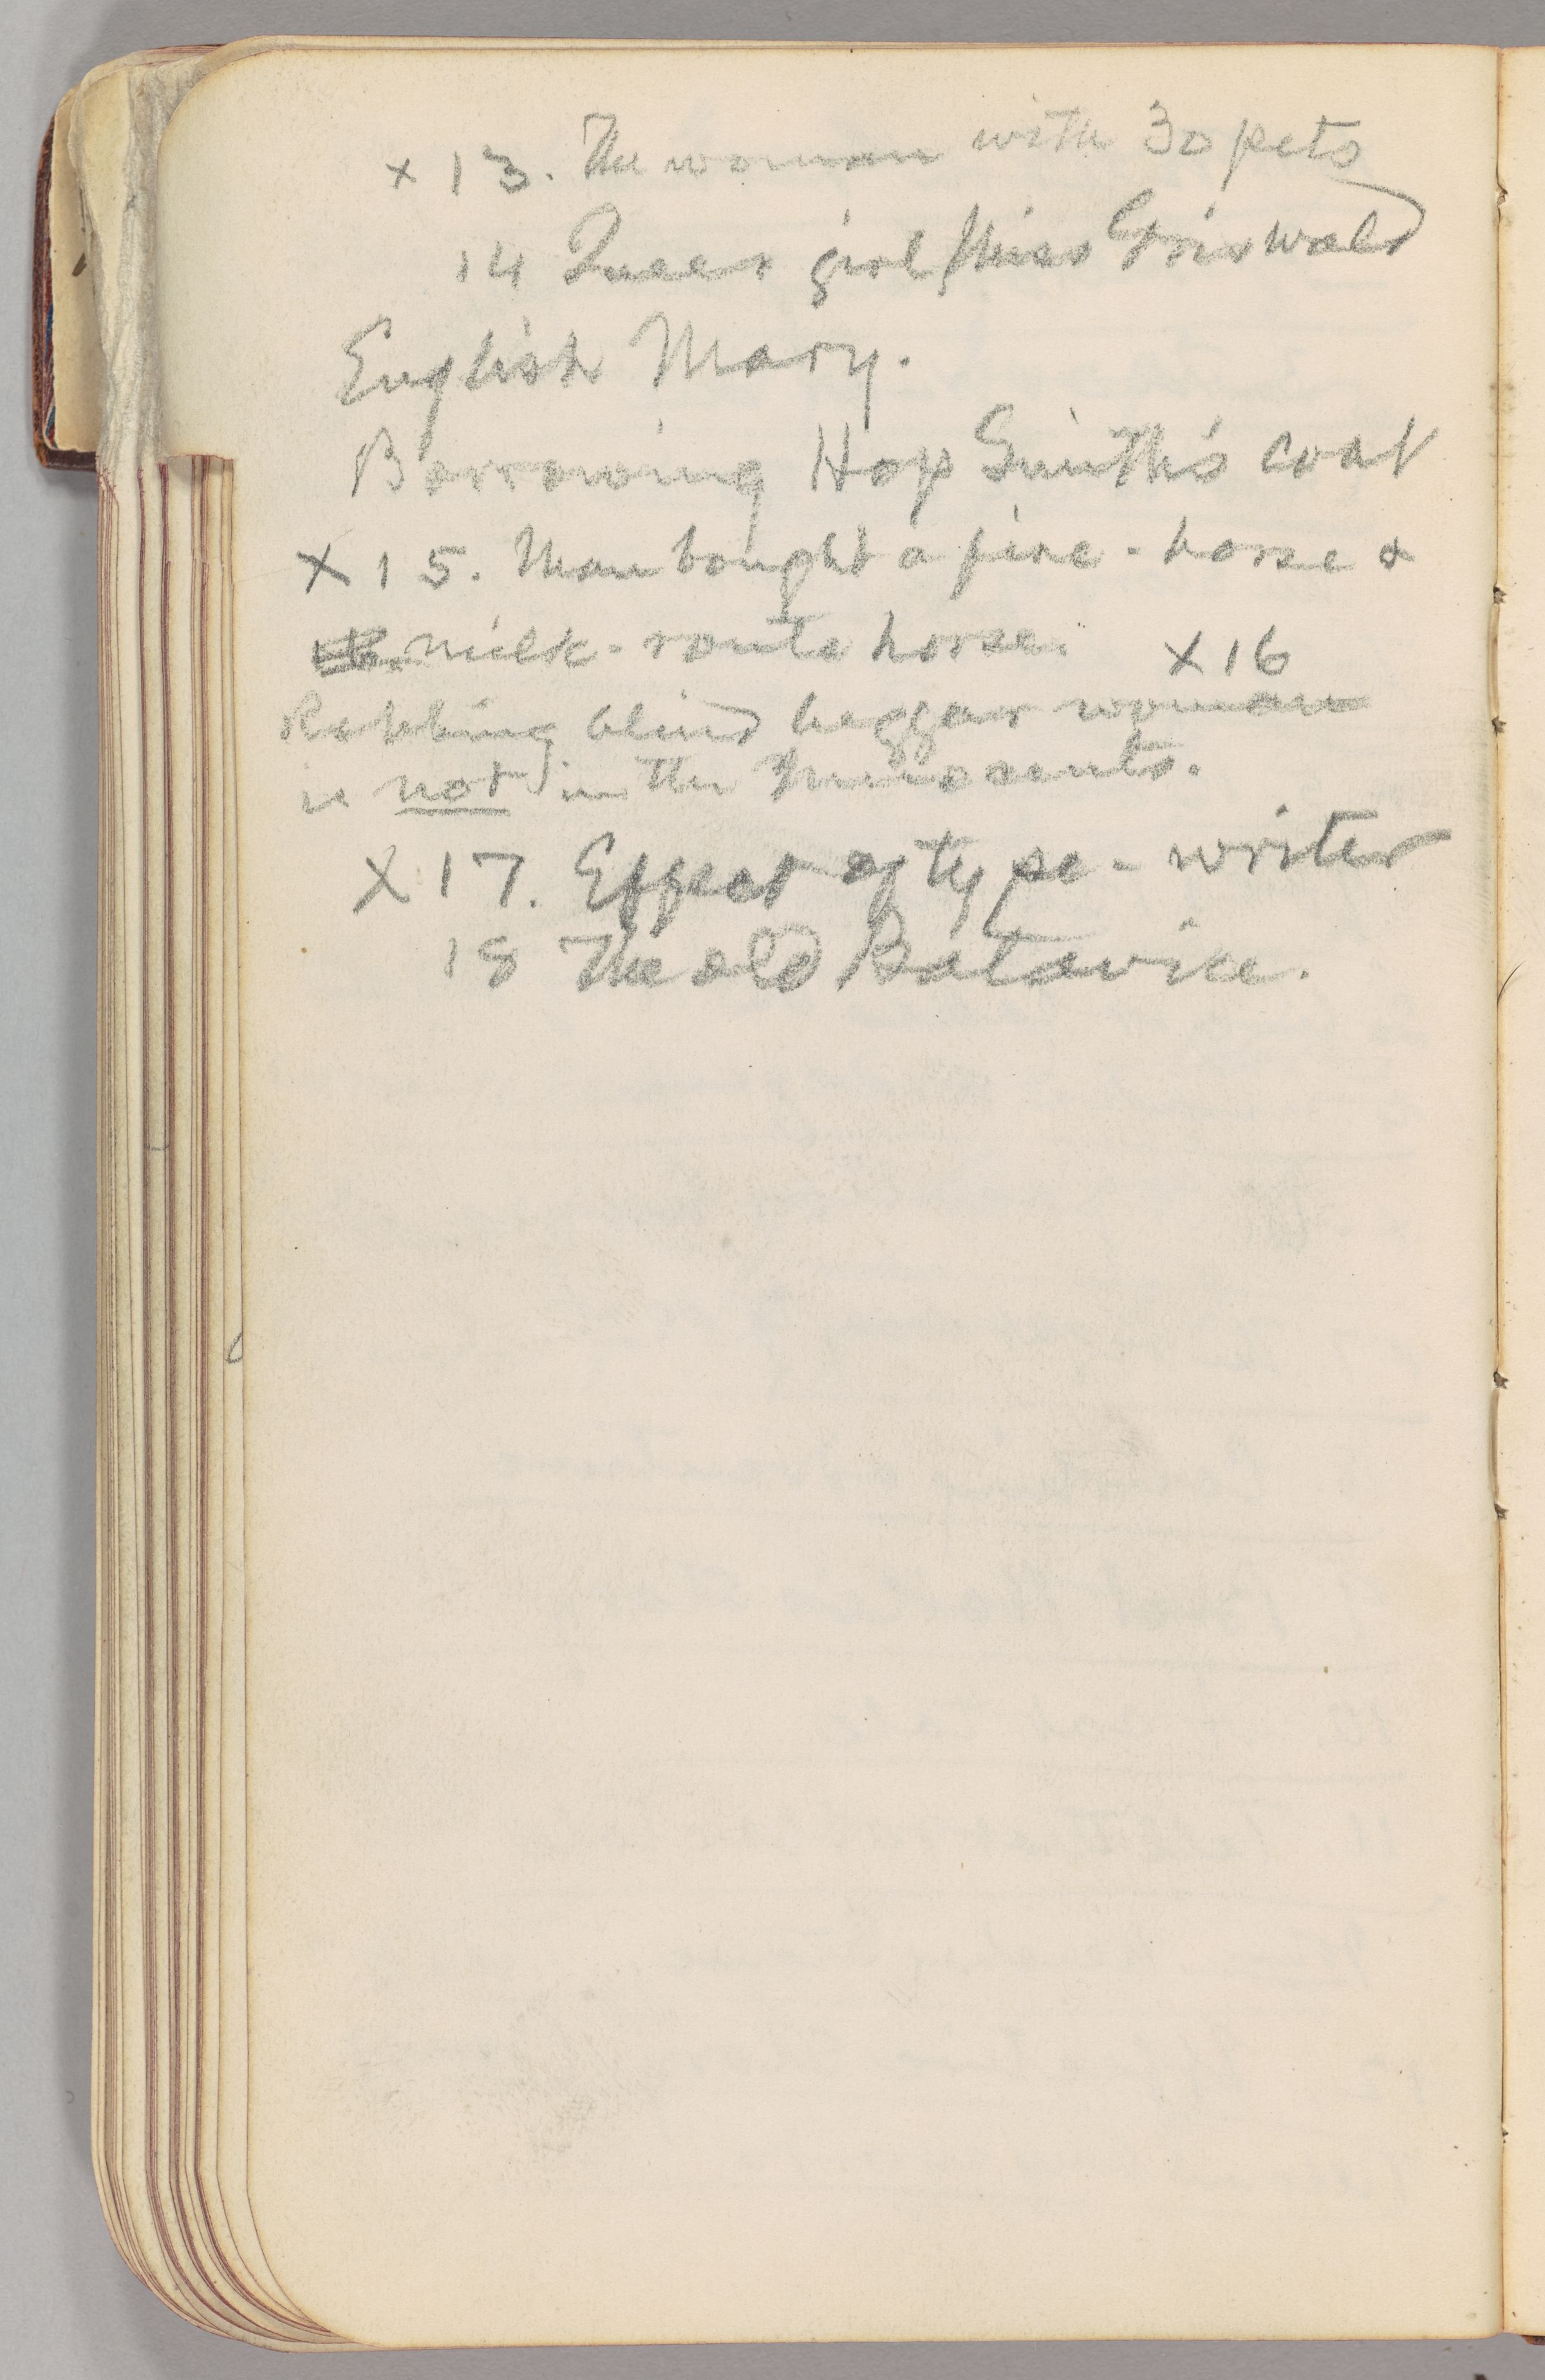 x 13. The woman with 30 pets
14 Queer girl / Miss Griswold
English Mary.
Borrowing Hop Smith's coat
X 15. Man bought a fire-horse &
milk-route horse. X 16
Robbing blind beggar woman
is not in the Innocents.
X 17. Effect of type-writer
18 The old Batavia.